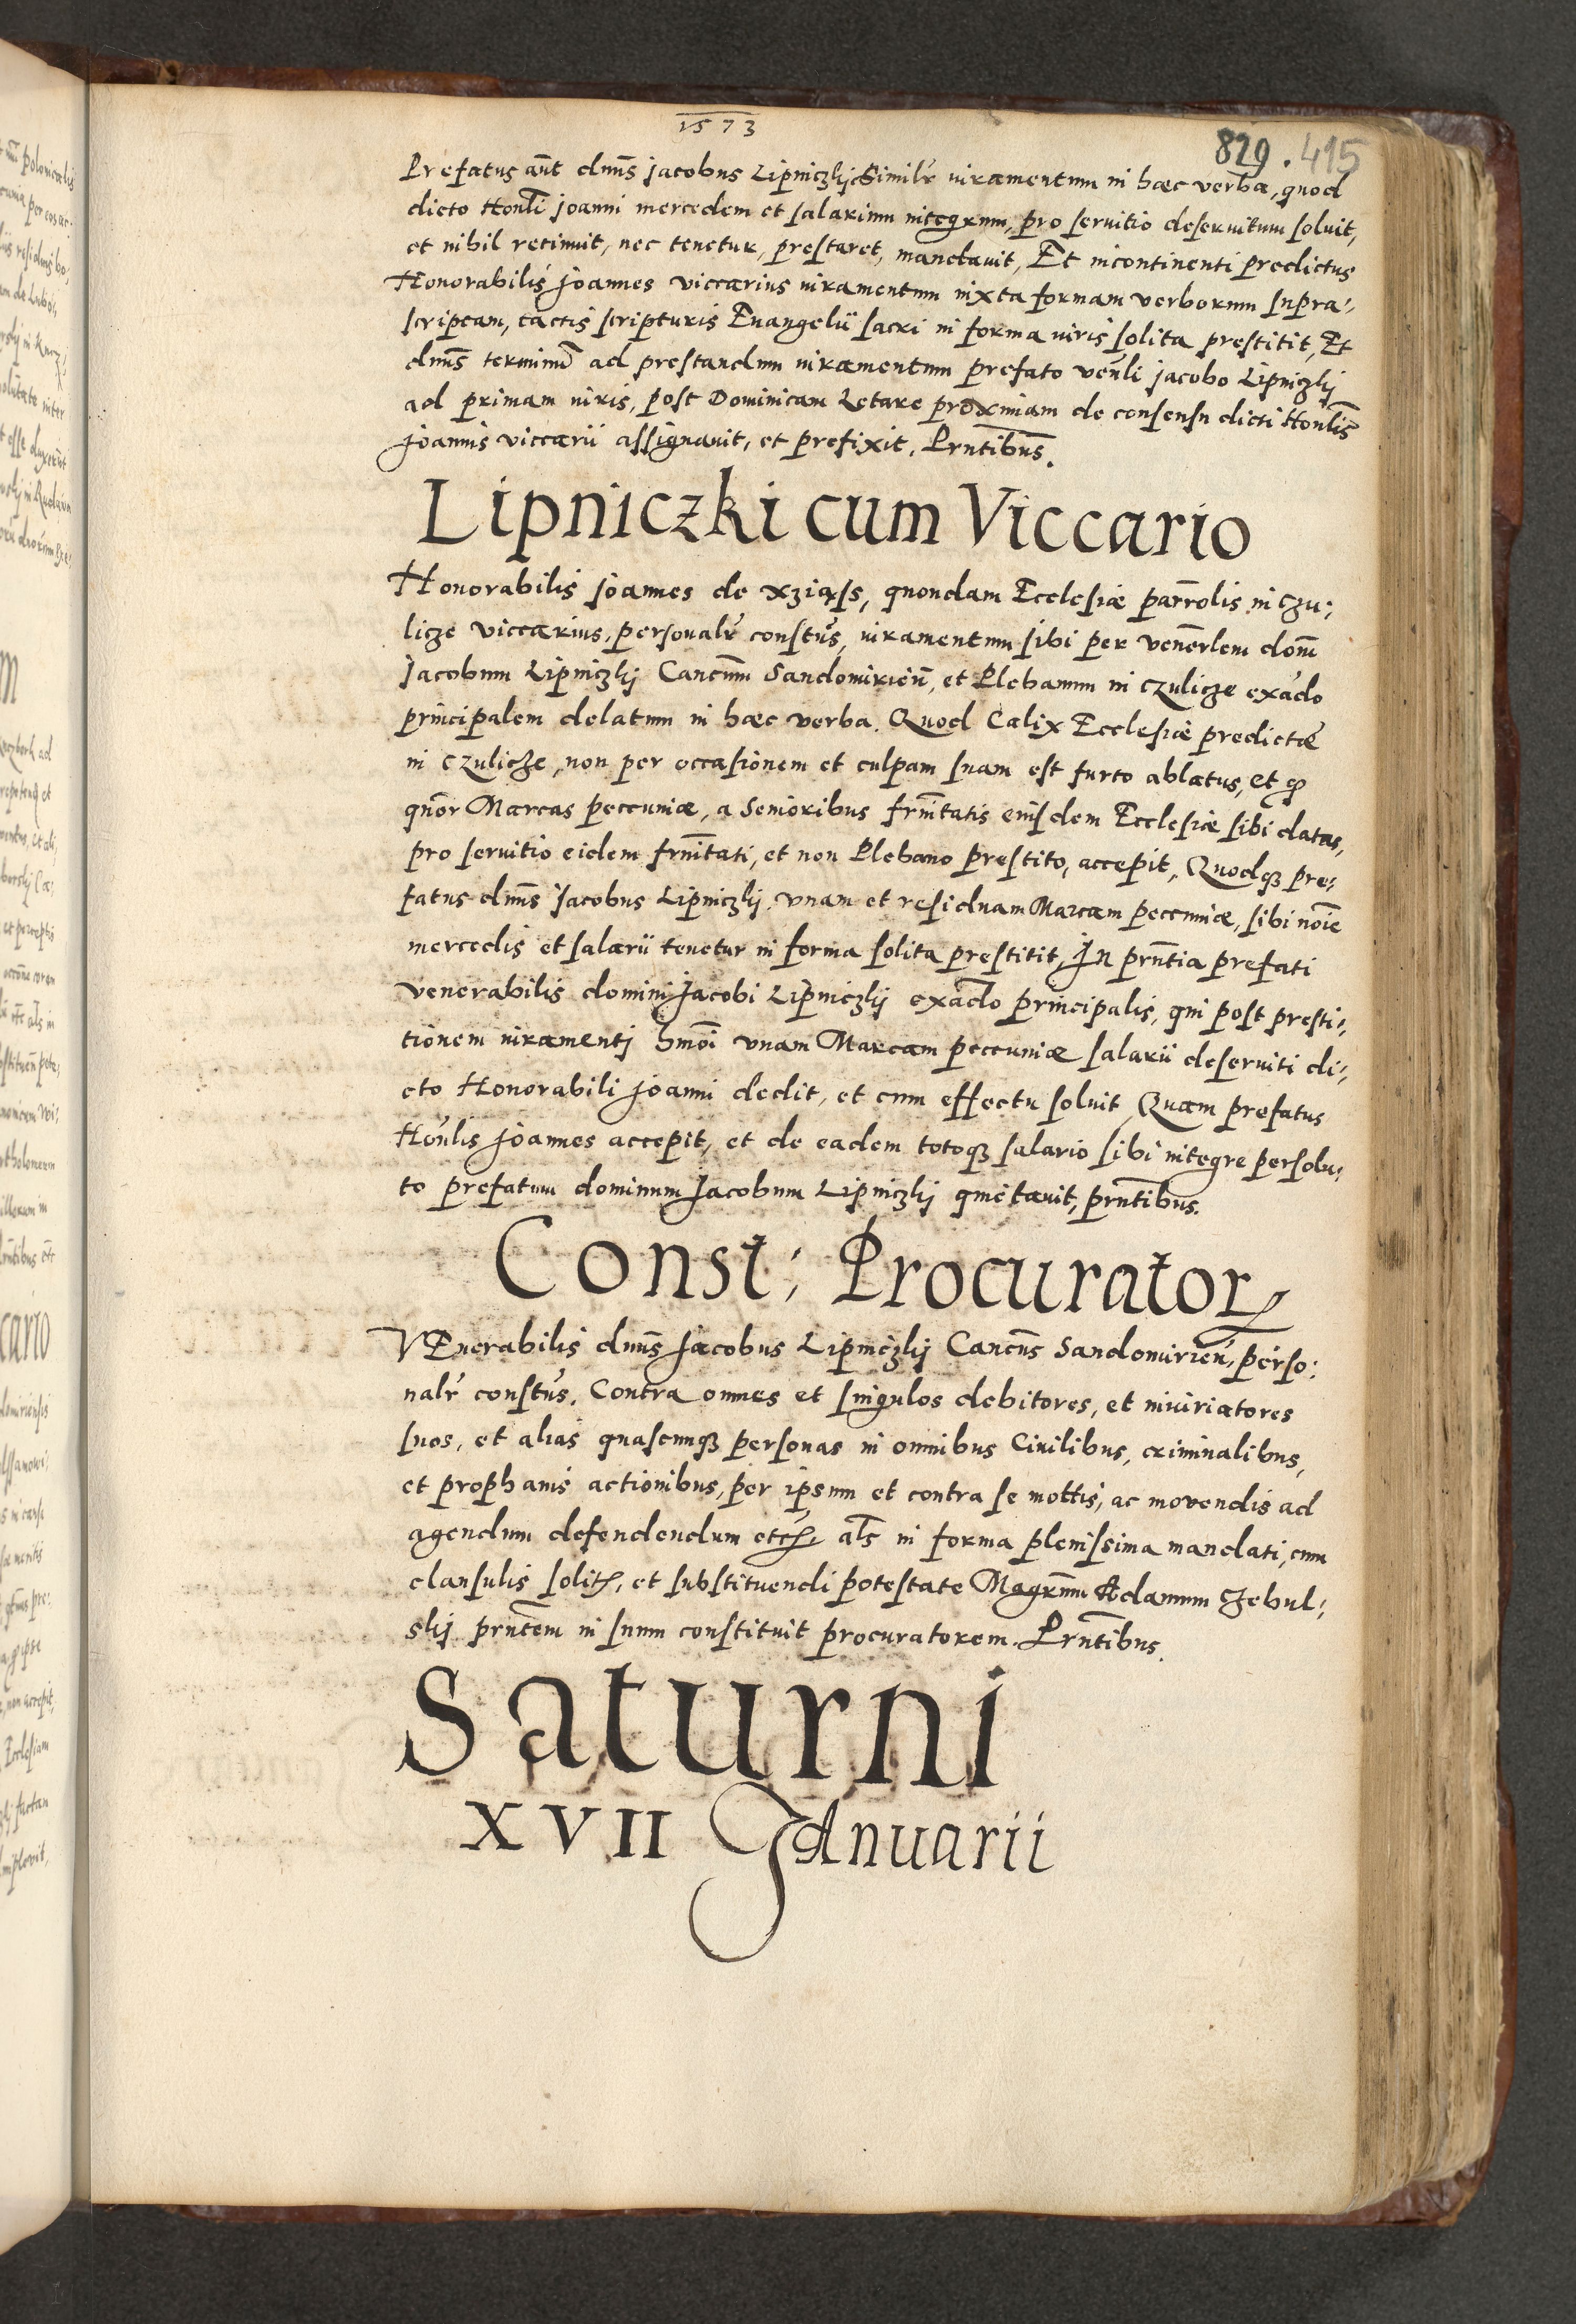 1573
829. 415
Prefatus aūt dnūs Jacobus Lipniczkij Similr̄ iuramentum in hæc verba, quod
dicto Honli Joanni mercedem et salarium integrum, pro seruitio deseruitum soluit,
et nihil retinuit, nec tenetur, prestaret, mandauit, Et incontinenti predictus
Honorabilis Joannes viccarius iuramentum iuxta formam verborum supra,
scriptam, tactis scripturis Euangelii sacri in forma iuris solita prestitit, Et
dnūs terminū ad prestandum iuramentum prefato venli Jacobo Lipniczkij
ad primam iuris, post Dominicam Letare proximam de consensu dicti Honlis
Joannis viccarii assignauit, et prefixit, Prntibus.
Lipniczki cum Viccario
Honorabilis Joannes de quondam Ecclesiæ parrolis in Czu;
licze viccarius, personalr̄ constūs, iuramentum sibi per venerlem domī
Jacobum Lipniczkij Cancūm Sandomirień, et Plebanum in Czulicze exado
principalem delatum in hæc verba. Quod Calix Ecclesiæ predictæ
in Czulicze, non per occasionem et culpam suam est furto ablatus, et q
quor Marcas peccuniæ, a Senioribus frnitatis eiusdem Ecclesiæ sibi datas,
pro seruitio eidem frnitati, et non Plebano prestito, accepit, Quodqꝫ pre,
fatus dnūs Jacobus Lipniczkij, vnam et residuam Marcam peccuniæ, sibi noīe
mercedis et salarii tenetur in forma solita prestitit, In prntia prefati
venerabilis domini Jacobi Lipniczkij exado principalis, qui post presti,
tionem iuramentj hmoī vnam Marcam peccuniæ salarii deseruiti di,
cto Honorabili Joanni dedit, et cum effectu soluit, Quam prefatus
Honlis Joannes accepit, et de eadem totoqꝫ salario sibi integre persolu,
to prefatum dominum Jacobum Lipniczkij quietauit, prntibus.
Const; Procuratorꝫ
VEnerabilis dnūs Jacobus Lipniczkij Cancūs Sandomirień, perso:
nalr̄ constūs, Contra omnes et singulos debitores, et iniuriatores
suos, et alias quascunqꝫ personas in omnibus Ciuilibus, criminalibus,
et prophanis actionibus, per ipsum et contra se mottis, ac movendis ad
agendum defendendum etc, als in forma plenissima mandati, cum
clausulis solitꝭ, et substituendi potestate Magrūm Adamum Zebul,
skij prntem in suum constituit procuratorem. Prntibus.
Saturni
XVII Januarii